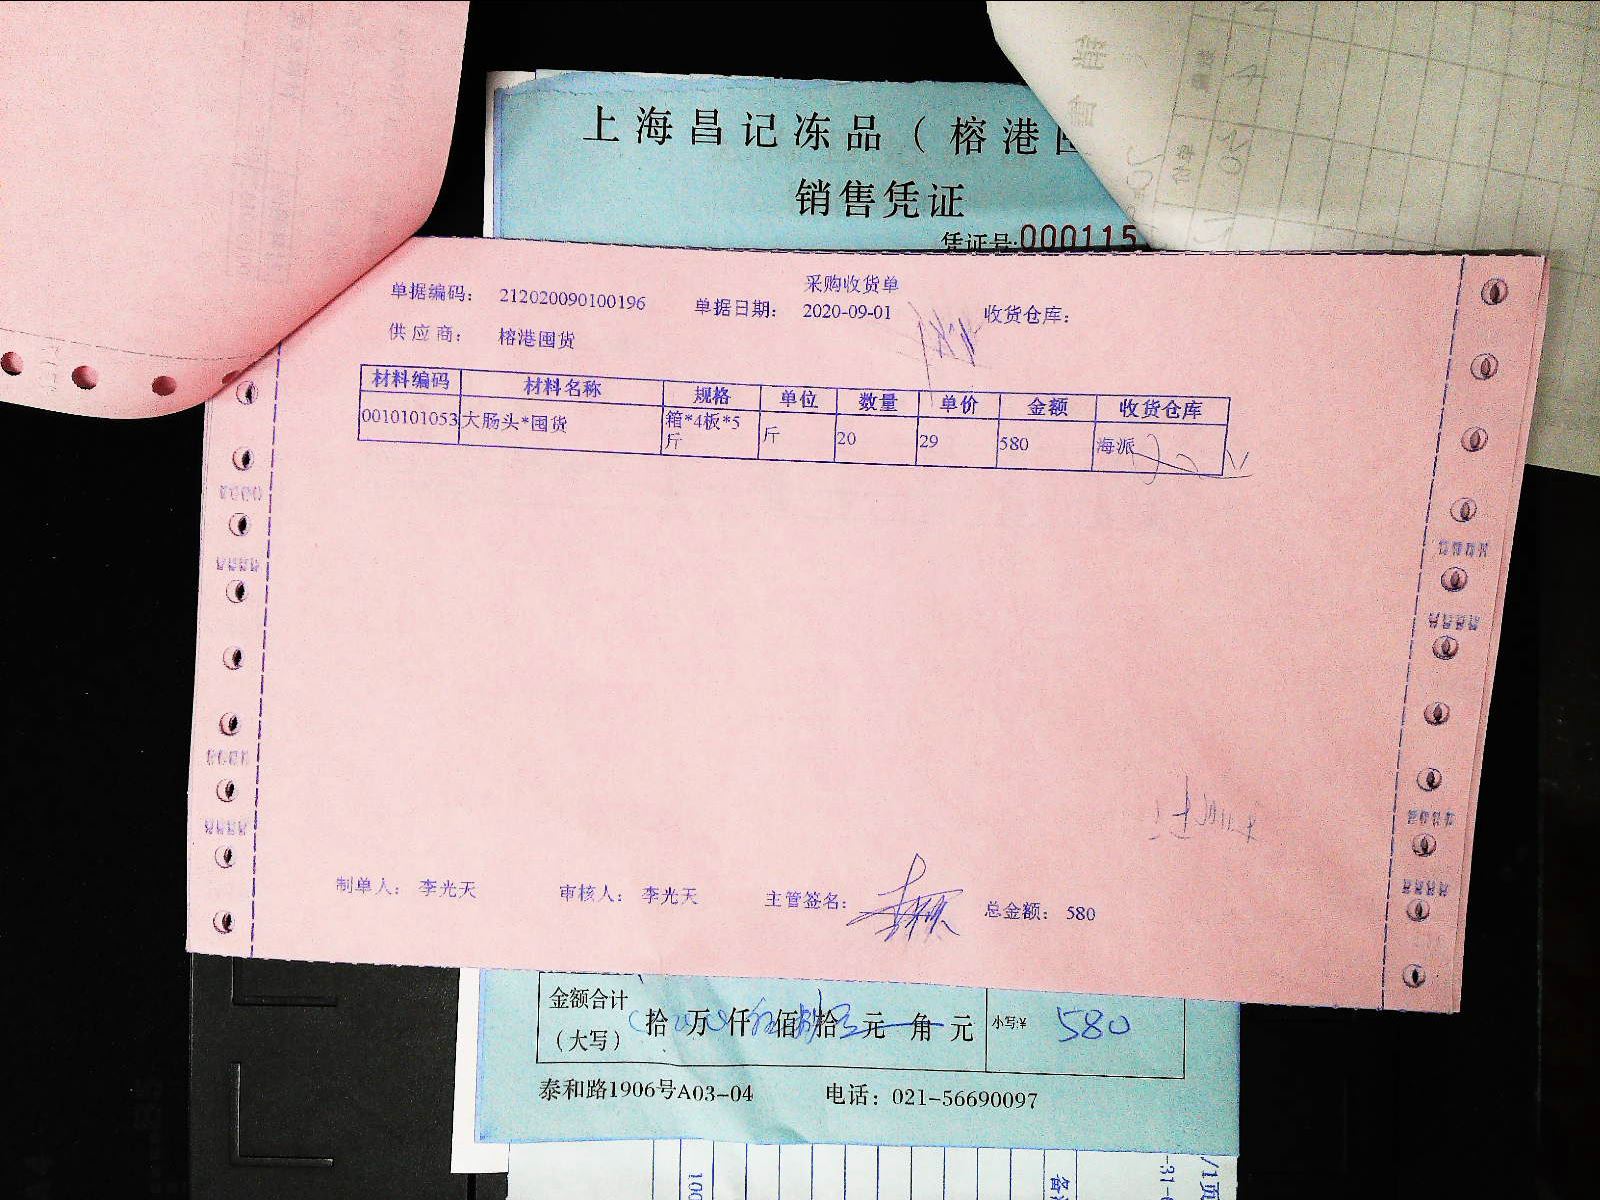 上海昌记冻品（榕港
销售凭证
凭证号:000115
采购收货单
单据编码： 212020090100196 单据日期： 2020-09-01 收货仓库：
供应商： 榕港囤货
材料编码 材料名称 规格 单位 数量 单价 金额 收货仓库
0010101053 大肠头*囤货 箱*4板*5斤 斤 20 29 580 海派
制单人： 李光天 审核人： 李光天 主管签名： 总金额： 580
金额合计（大写） 拾 万 仟 佰 拾 元 角 元 小写:¥ 580
泰和路1906号A03-04 电话：021-56690097